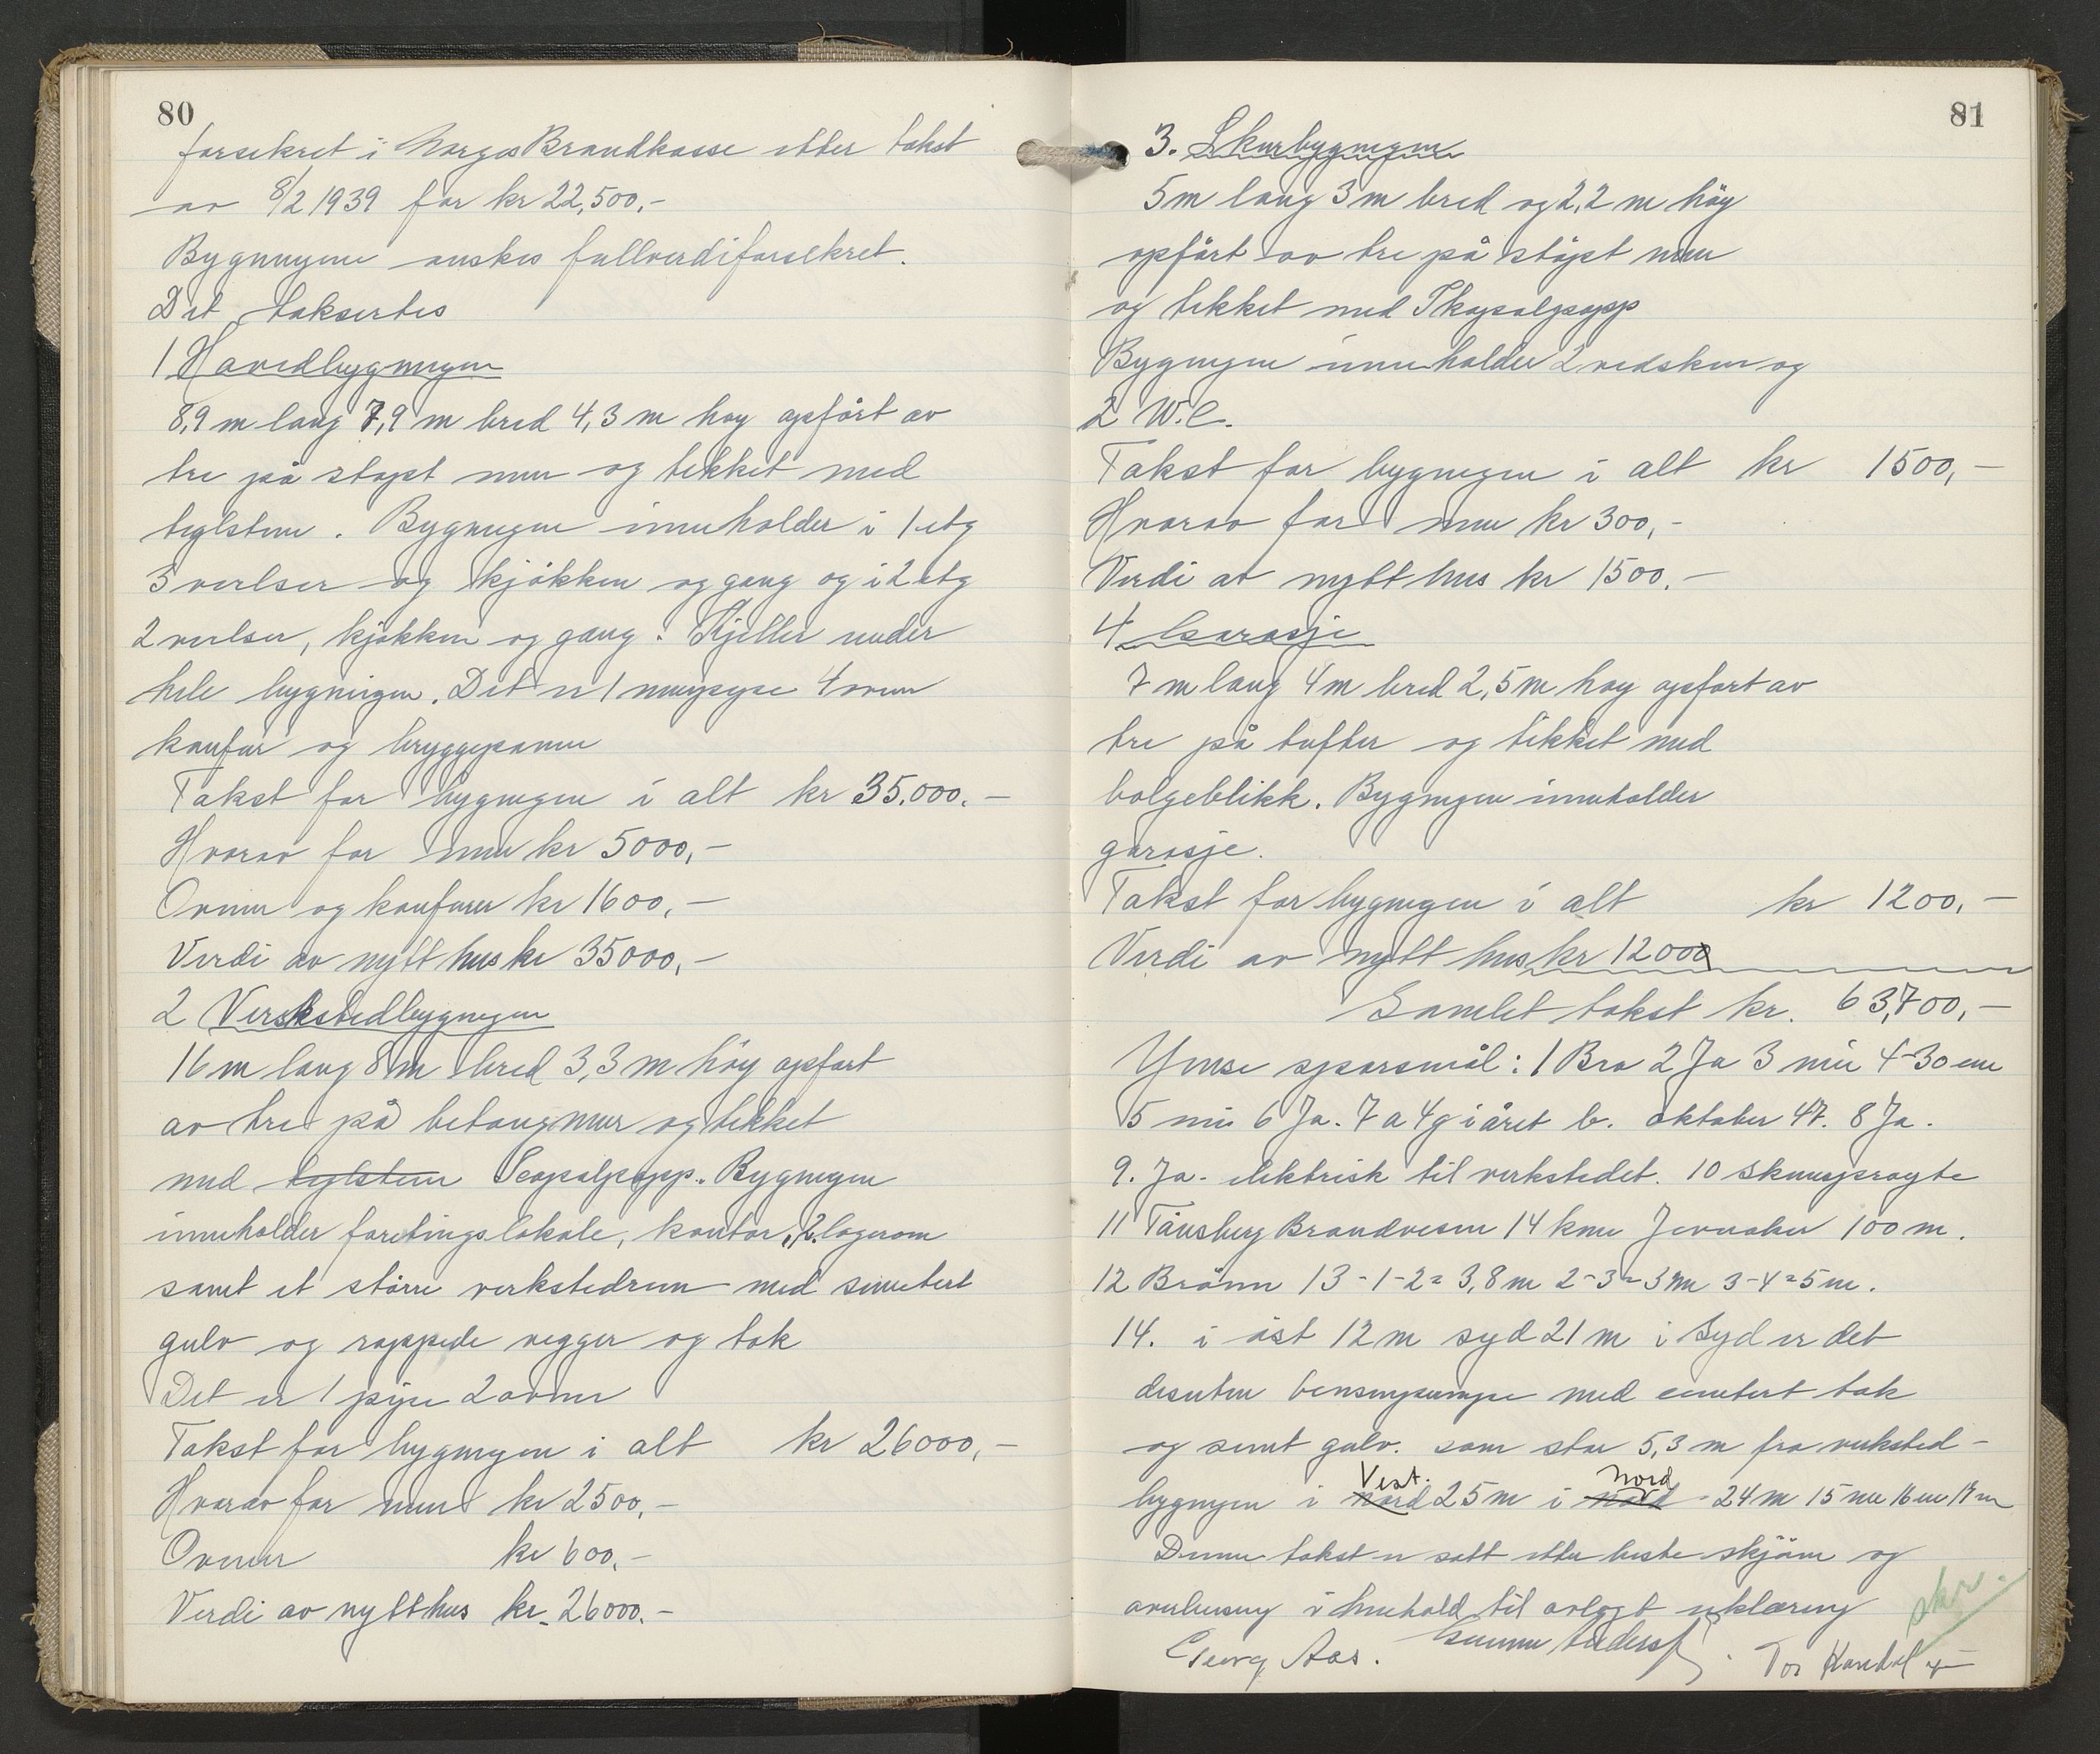 80
forsikret i Norges Brandkasse etter takst
av 8/2 1939 for kr 22,500,-
Bygningene ønskes fullverdiforsikret.
Det taksertes
1 Hovedbygningen
8,9 m lang 7,9 m bred 4,3 m høy opført av
tre på støpt mur og tekket med
teglsten. Bygningen inneholder i 1 etg
3 verlser og kjøkken og gang og i 2 etg
2 verlser, kjøkken og gang. Kjeller under
hele bygningen. Det er 1 murpipe 4 ovner
komfur og bryggepanne
Takst for bygningen i alt kr 35.000.-
Hvorav for mur kr 5000,-
Ovner og komfurer kr 1600,-
Verdi av nytt hus kr 35000,-
2 Verskstedbygningen
16 m lang 8 m bred 3,3 m høy opført
av tre på betongmur og tekket
med teglsten Bygningen
inneholder foretningslokale, kontor, 2 lagerom
samt et større verkstedrum med sementert
gulv og rappede vegger og tak
Det er 1 pipe 2 ovner
Takst for bygningen i alt kr 26000,-
Hvorav for mur kr 2500,-
Ovner kr 600,-
Verdi av nytt hus kr. 26000.-
81
3. Skurbygningen
5 m lang 3 m bred og 2,2 m høy
opført av tre på støpt mur
og tekket med
Bygningen inneholder 2 vedskur og
2 W.C.
Takst for bygningen i alt kr 1500,-
Hvorav for mur kr 300,-
Verdi av nytt hus kr 1500.-
4 Garasje
7 m lang 4 m bred 2,5 m høy opført av
tre på tufter og tekket med
bølgeblikk. Bygningen inneholder
garasje.
Takst for bygningen i alt kr 1200,-
Verdi av nytt hus kr 12000
Samlet takst kr. 63,700,-
Ymse spørsmål: 1 Bra 2 Ja 3 nei 4-30 cm
5 nei 6 Ja. 7 a 4 g i året b. oktober 47. 8 Ja.
9. Ja. elektrisk til verkstedet. 10 skumsprøyte
11 Tønsberg Brandvesen 14 km 100 m.
12 Brønn 13-1-2= 3,8 m 2-3= 3 m 3-4=5 m.
14. i øst 12 m syd 21 m i Syd er det
desuten bensinpumpe med sementert tak
og sement gulv. som står 5,3 m fra verksted-
bygningen i nord Vest. 25 m i nord Nord - 24 m 15 nei 16 nei 17 nei
Denne takst er satt etter beste skjønn og
overbevisning i henhold til avlagt erklæring
Georg Aas. Gunnar Tor
skr.